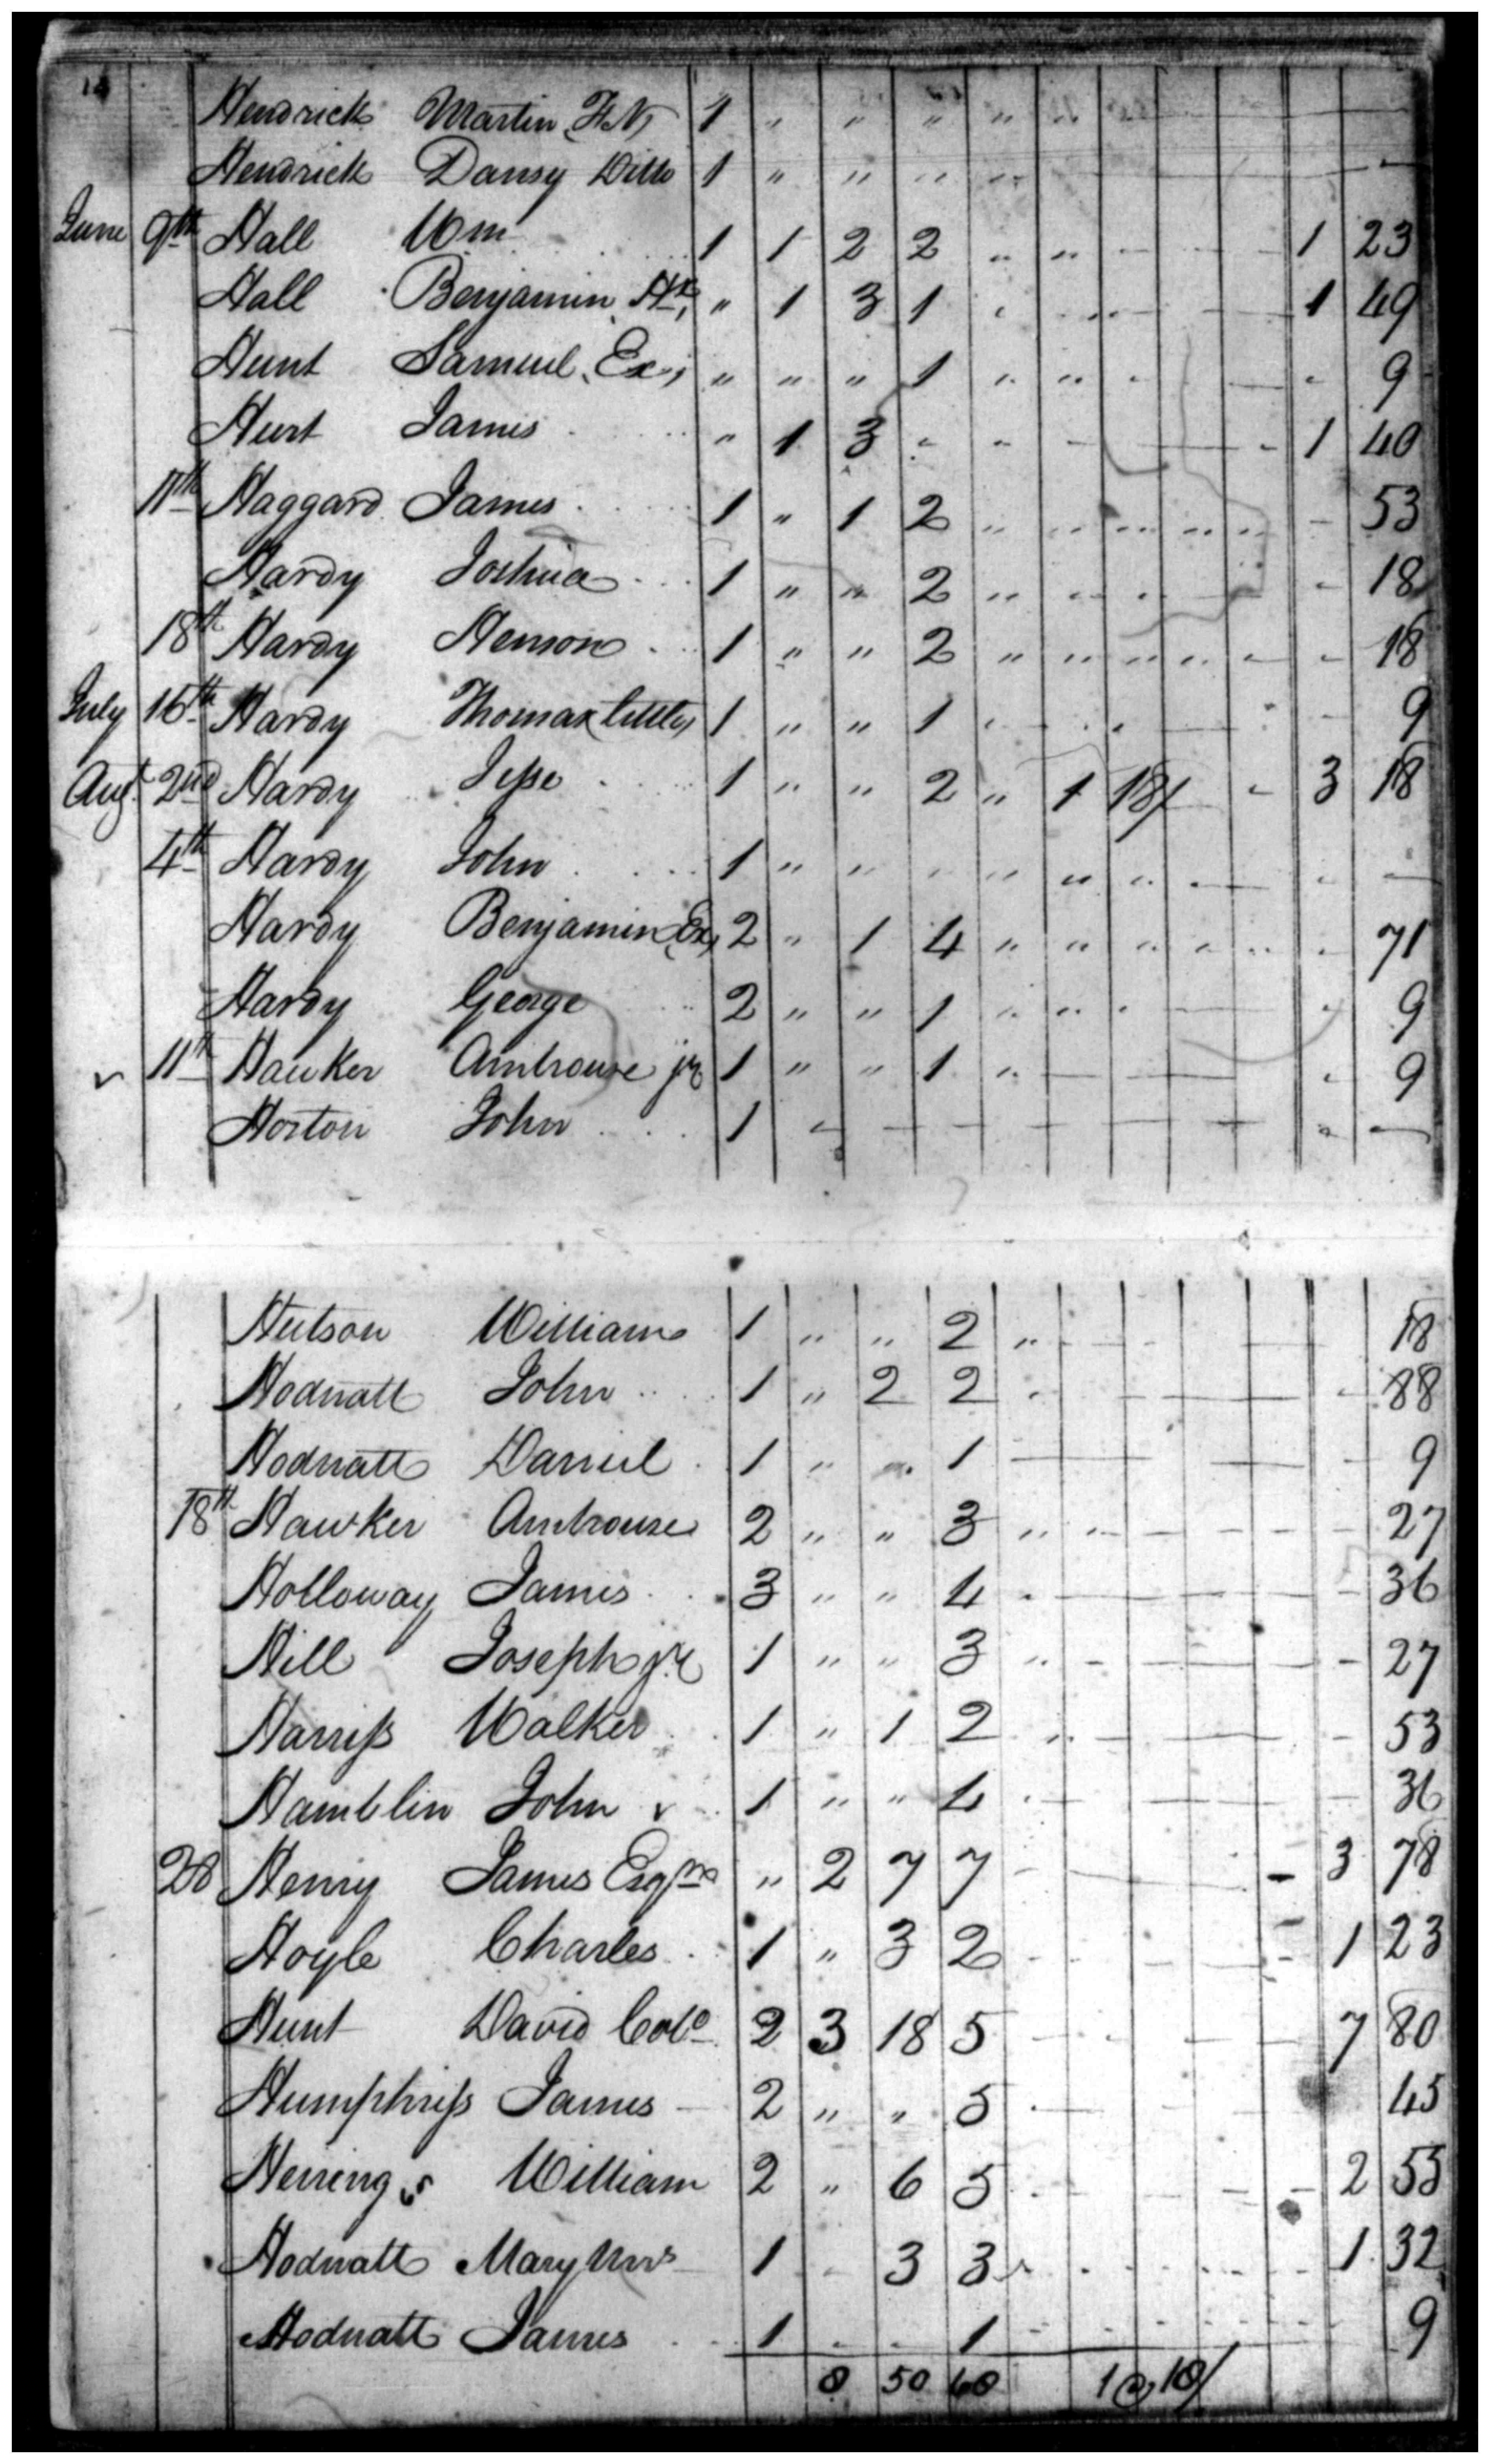 Hendrick Martin (FN) 1 " " " " " "
Hendrick Dansy Ditto 1 " " " " —
June 9th Hall Wm 1 1 2 2 " " - - - 1 23
Hall Benjamin " 1 3 1 " " - - 1 49
Hunt Samuel (Ex) " " " 1 " " - - - 9
Hurt James " 1 3 " " - - - 1 40
11th Haggard James 1 " 1 2 " " " " " - 53
Hardy Joshua 1 " " 2 " " " - - 18
18th Hardy Henson 1 " " 2 " " " " - - 18
July 16th Hardy Thomas (little) 1 " " 1 " " " - - 9
Augt 2nd Hardy Jesse 1 " " 2 " 1 18/ - 3 18
4th Hardy John 1 " " " " " " - - —
Hardy Benjamin (Ex) 2 " 1 4 " " " " " - 71
Hardy George 2 " " 1 " " " - - 9
11th Hawker Ambrouse jr 1 " " 1 " - - - - 9
Horton John 1 - - - - - - - - —
Hutson William 1 " " 2 " - - - - 18
Hodnatt John 1 " 2 2 " - - - - 88
Hodnatt Daniel 1 " " 1 - - - - - 9
18th Hawker Ambrouse 2 " " 3 " " - - - - 27
Holloway James 3 " " 4 " - - - - 36
Hill Joseph jr 1 " " 3 " - - - - 27
Harriss Walker 1 " 1 2 " - - - - 53
Hamblin John 1 " " 4 " - - - - 36
28 Henry James Esqre " 2 7 7 - - - - 3 78
Hoyle Charles 1 " 3 2 - - - - 1 23
Hunt David Colo 2 3 18 5 - - - - 7 80
Humphriss James 2 " " 5 - - - - 45
Herring William 2 " 6 5 - - - - 2 55
Hodnatt Mary Mrs 1 - 3 3 - - - - 1 32
Hodnatt James 1 - - 1 - - - - 9
8 50 60 1 @ 18/